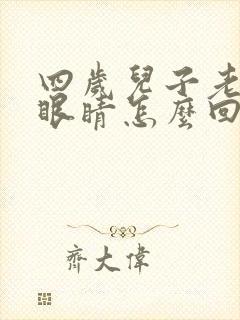 四歲兒子老
眼睛怎麼回
齊大偉